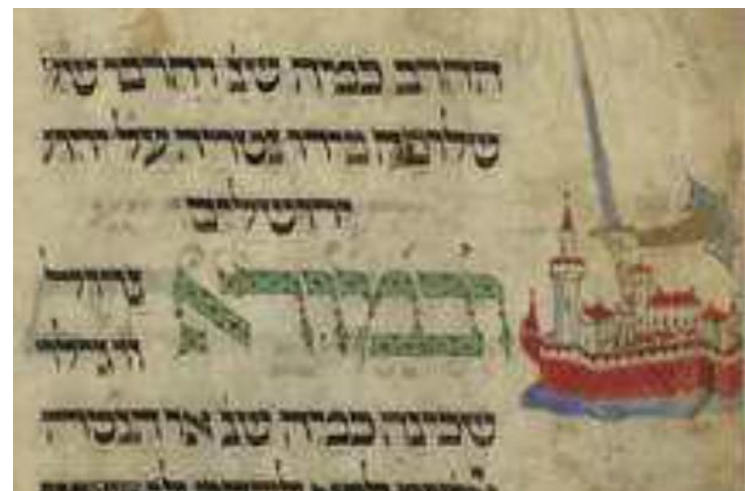 החרב כמה שנ וחרבו של
שלופה בידו נטויה על ירו
ירושלים
ובמורא גדול
זה גילוי
שכינה כמה שנ או הנסה